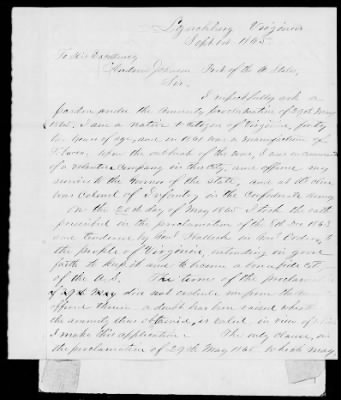 Lynchburg Virginia
Sept 1st 1865.
To His Excellency
Andrew Johnson Prest of the U States,
Sir,
I respectfully ask a
pardon under the Amnesty proclamation of 29th May
1865. I am a native & citizen of Virginia, forty
two years of age, and in 1861 was a manufacturer of
Tobacco. Upon the outbreak of the war, I was in command
of a volunteer company in this city, and offered my
services to the Governor of the State, and at its close
was Colonel of Infantry, in the Confederate Army
On the 25th day of May 1865 I took the oath
prescribed in the proclamation of the 8th Dec 1863
and tendered by Genl Halleck in Genl Orders, to
the people of Virginia, intending in good
faith to keep it and to become a citizen
of the U.S. The terms of the proclamation
of 29th May does not exclude me from the
offered there a doubt has been raised whether
the amnesty thus obtained, is valid in view of
I make this application. The only clause, in
the proclamation of 29th May 1865. which may